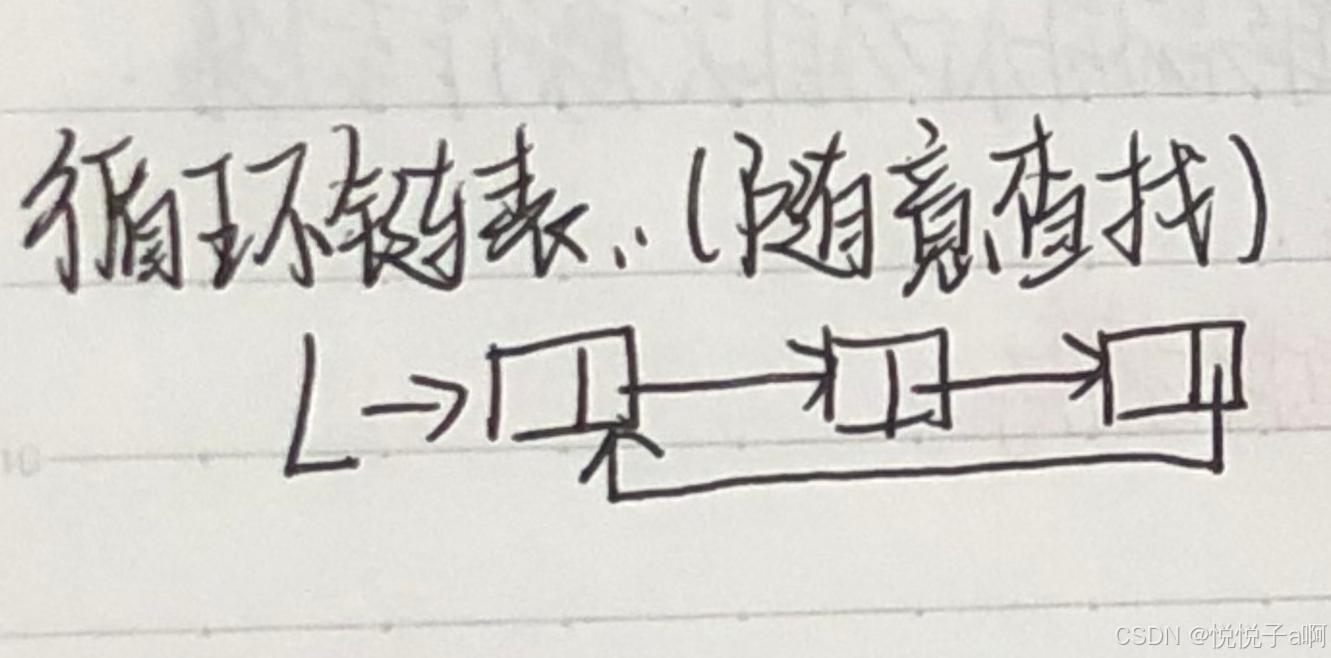 循环链表.(随意查找)
L
10
CSDN @悦悦子a啊